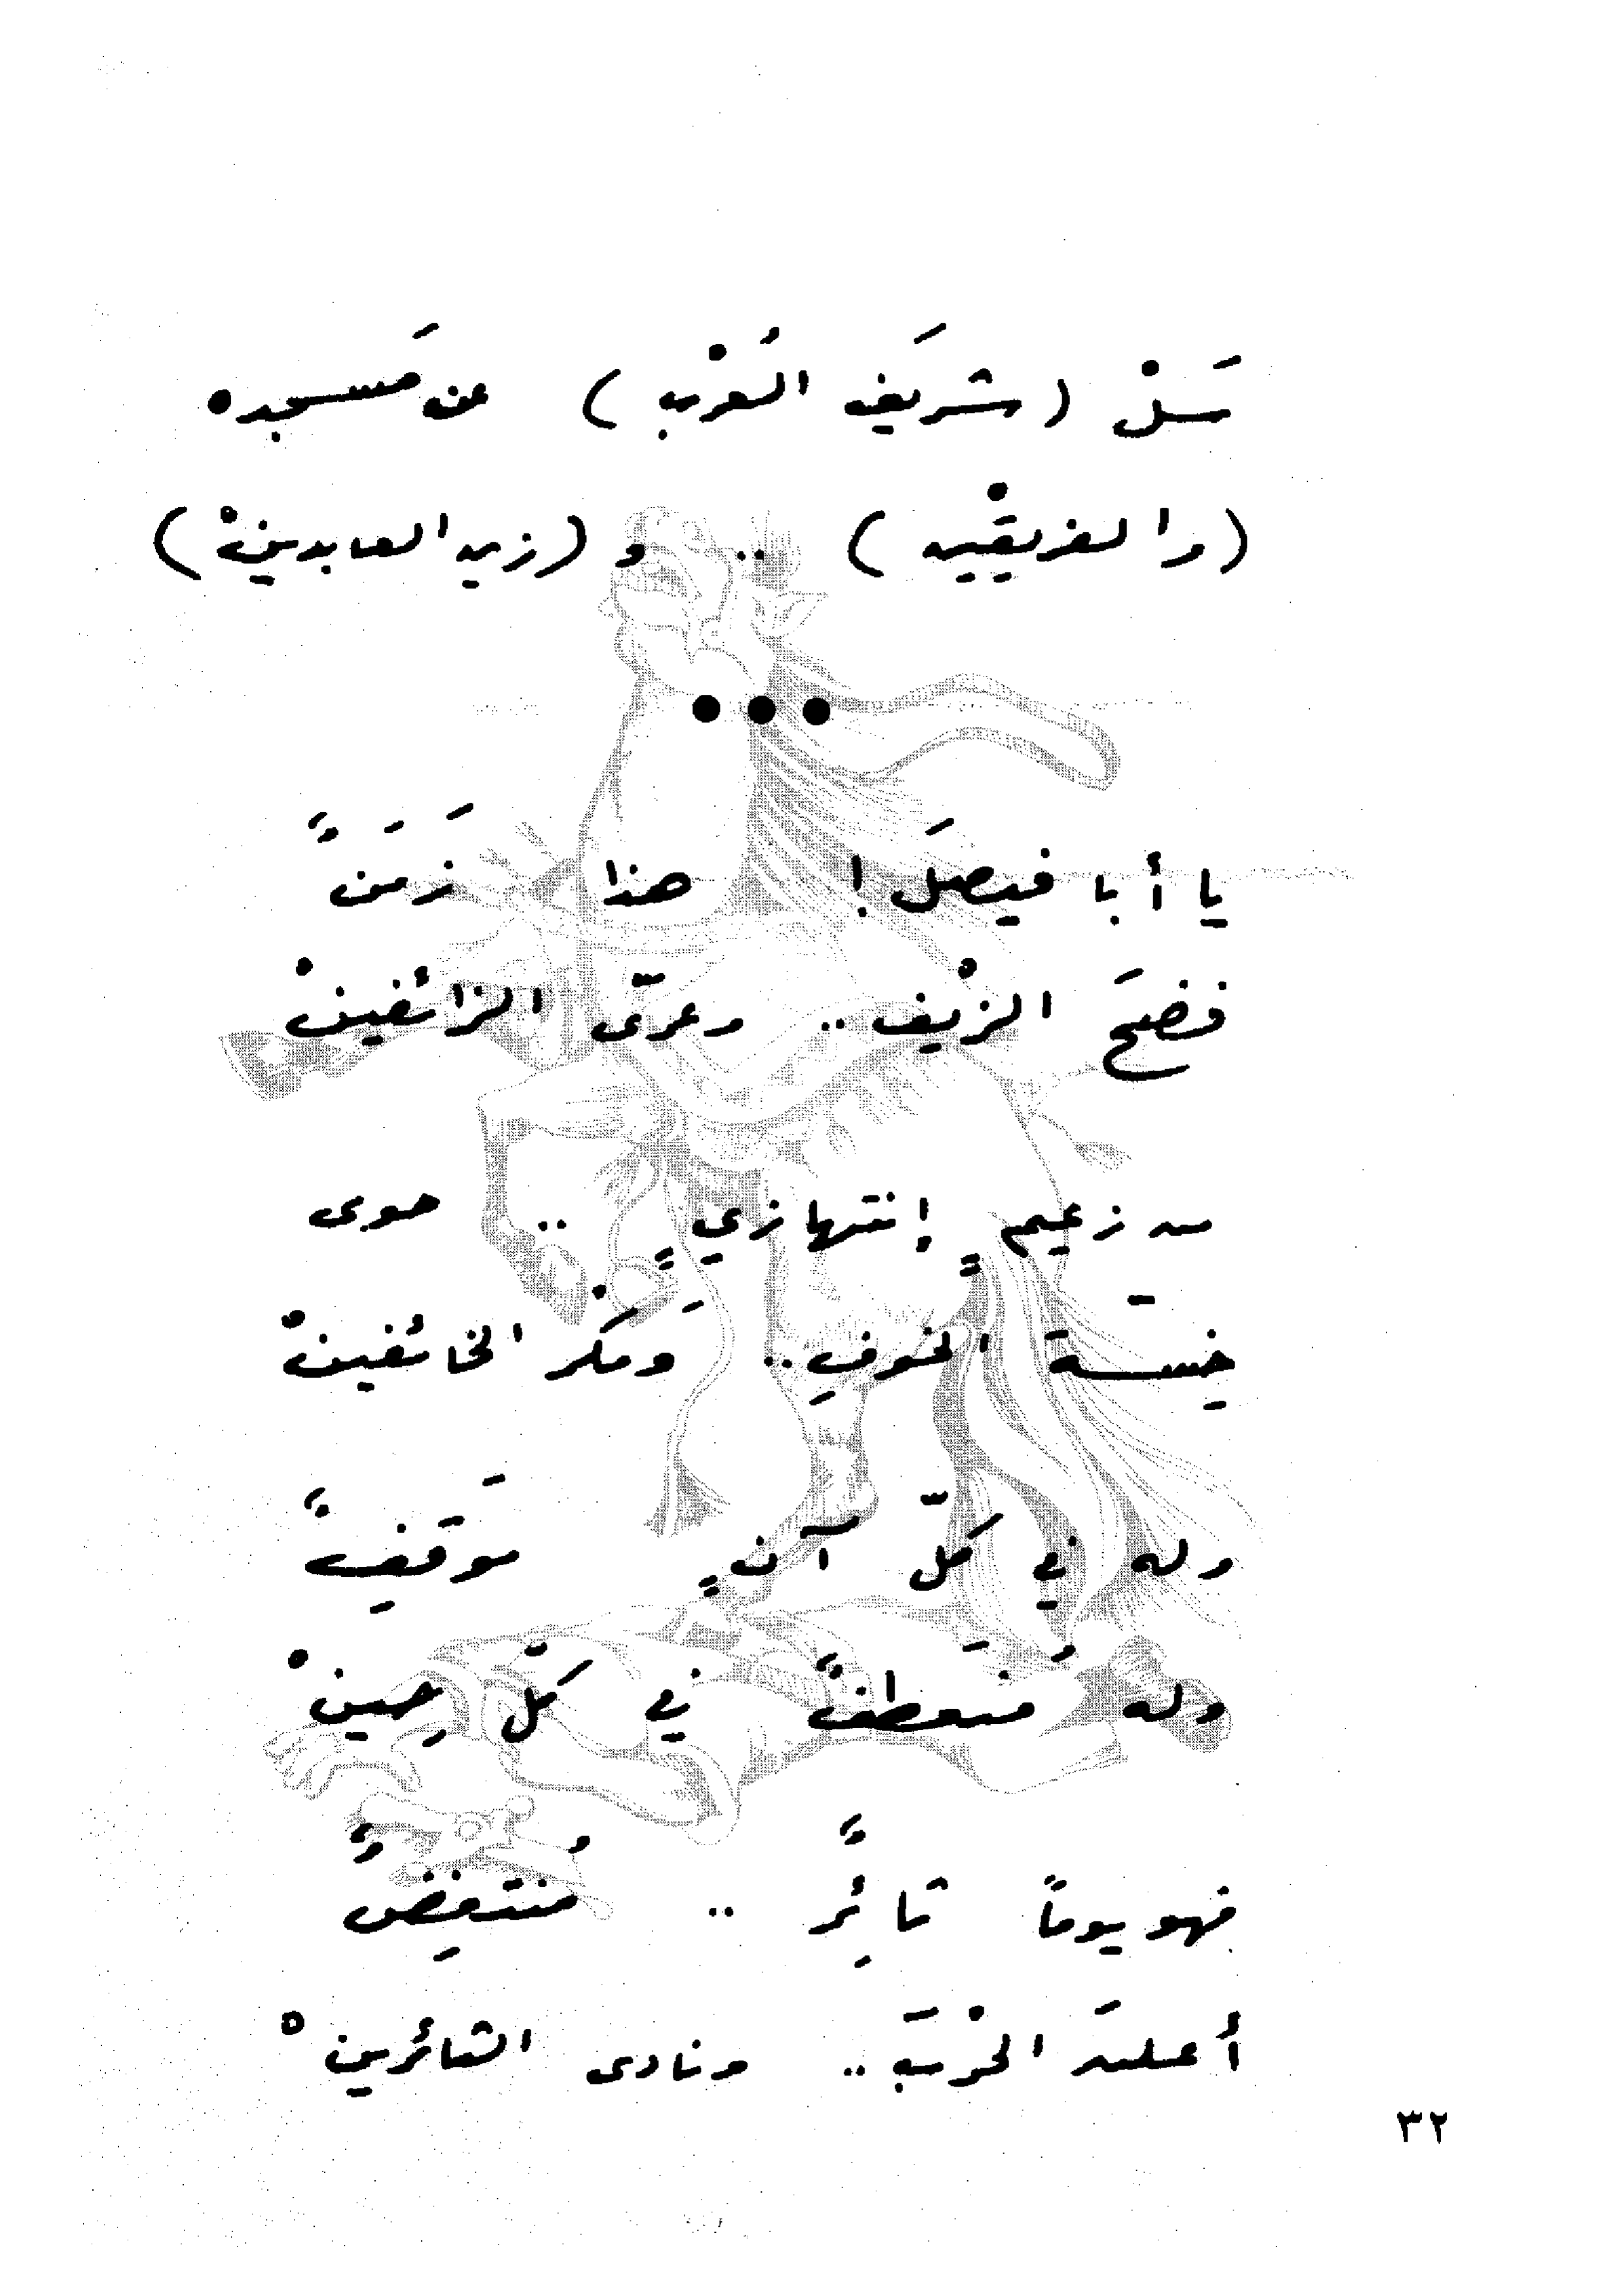 سَلْ (شريَف العُرْب) عن مَسجده
(والفريقيْن) .. و (زين العابدينْ)
•••
يا أبا فيصلَ! هذا زَمَنٌ
فضحَ الزيْف .. وعرّى الزائفينْ
من زعيمٍ إنتهازيٍ .. حوى
خِسّة الخوفِ .. ومَكْر الخائفينْ
وله في كلّ آنٍ مَوقِفٌ
وله مُنعَطفٌ في كلّ حِينْ
فهو يوماً ثائِرٌ .. مُنتفِضٌ
أُعلنَ الحرْبَ .. ونادى الثائرينْ
٣٢